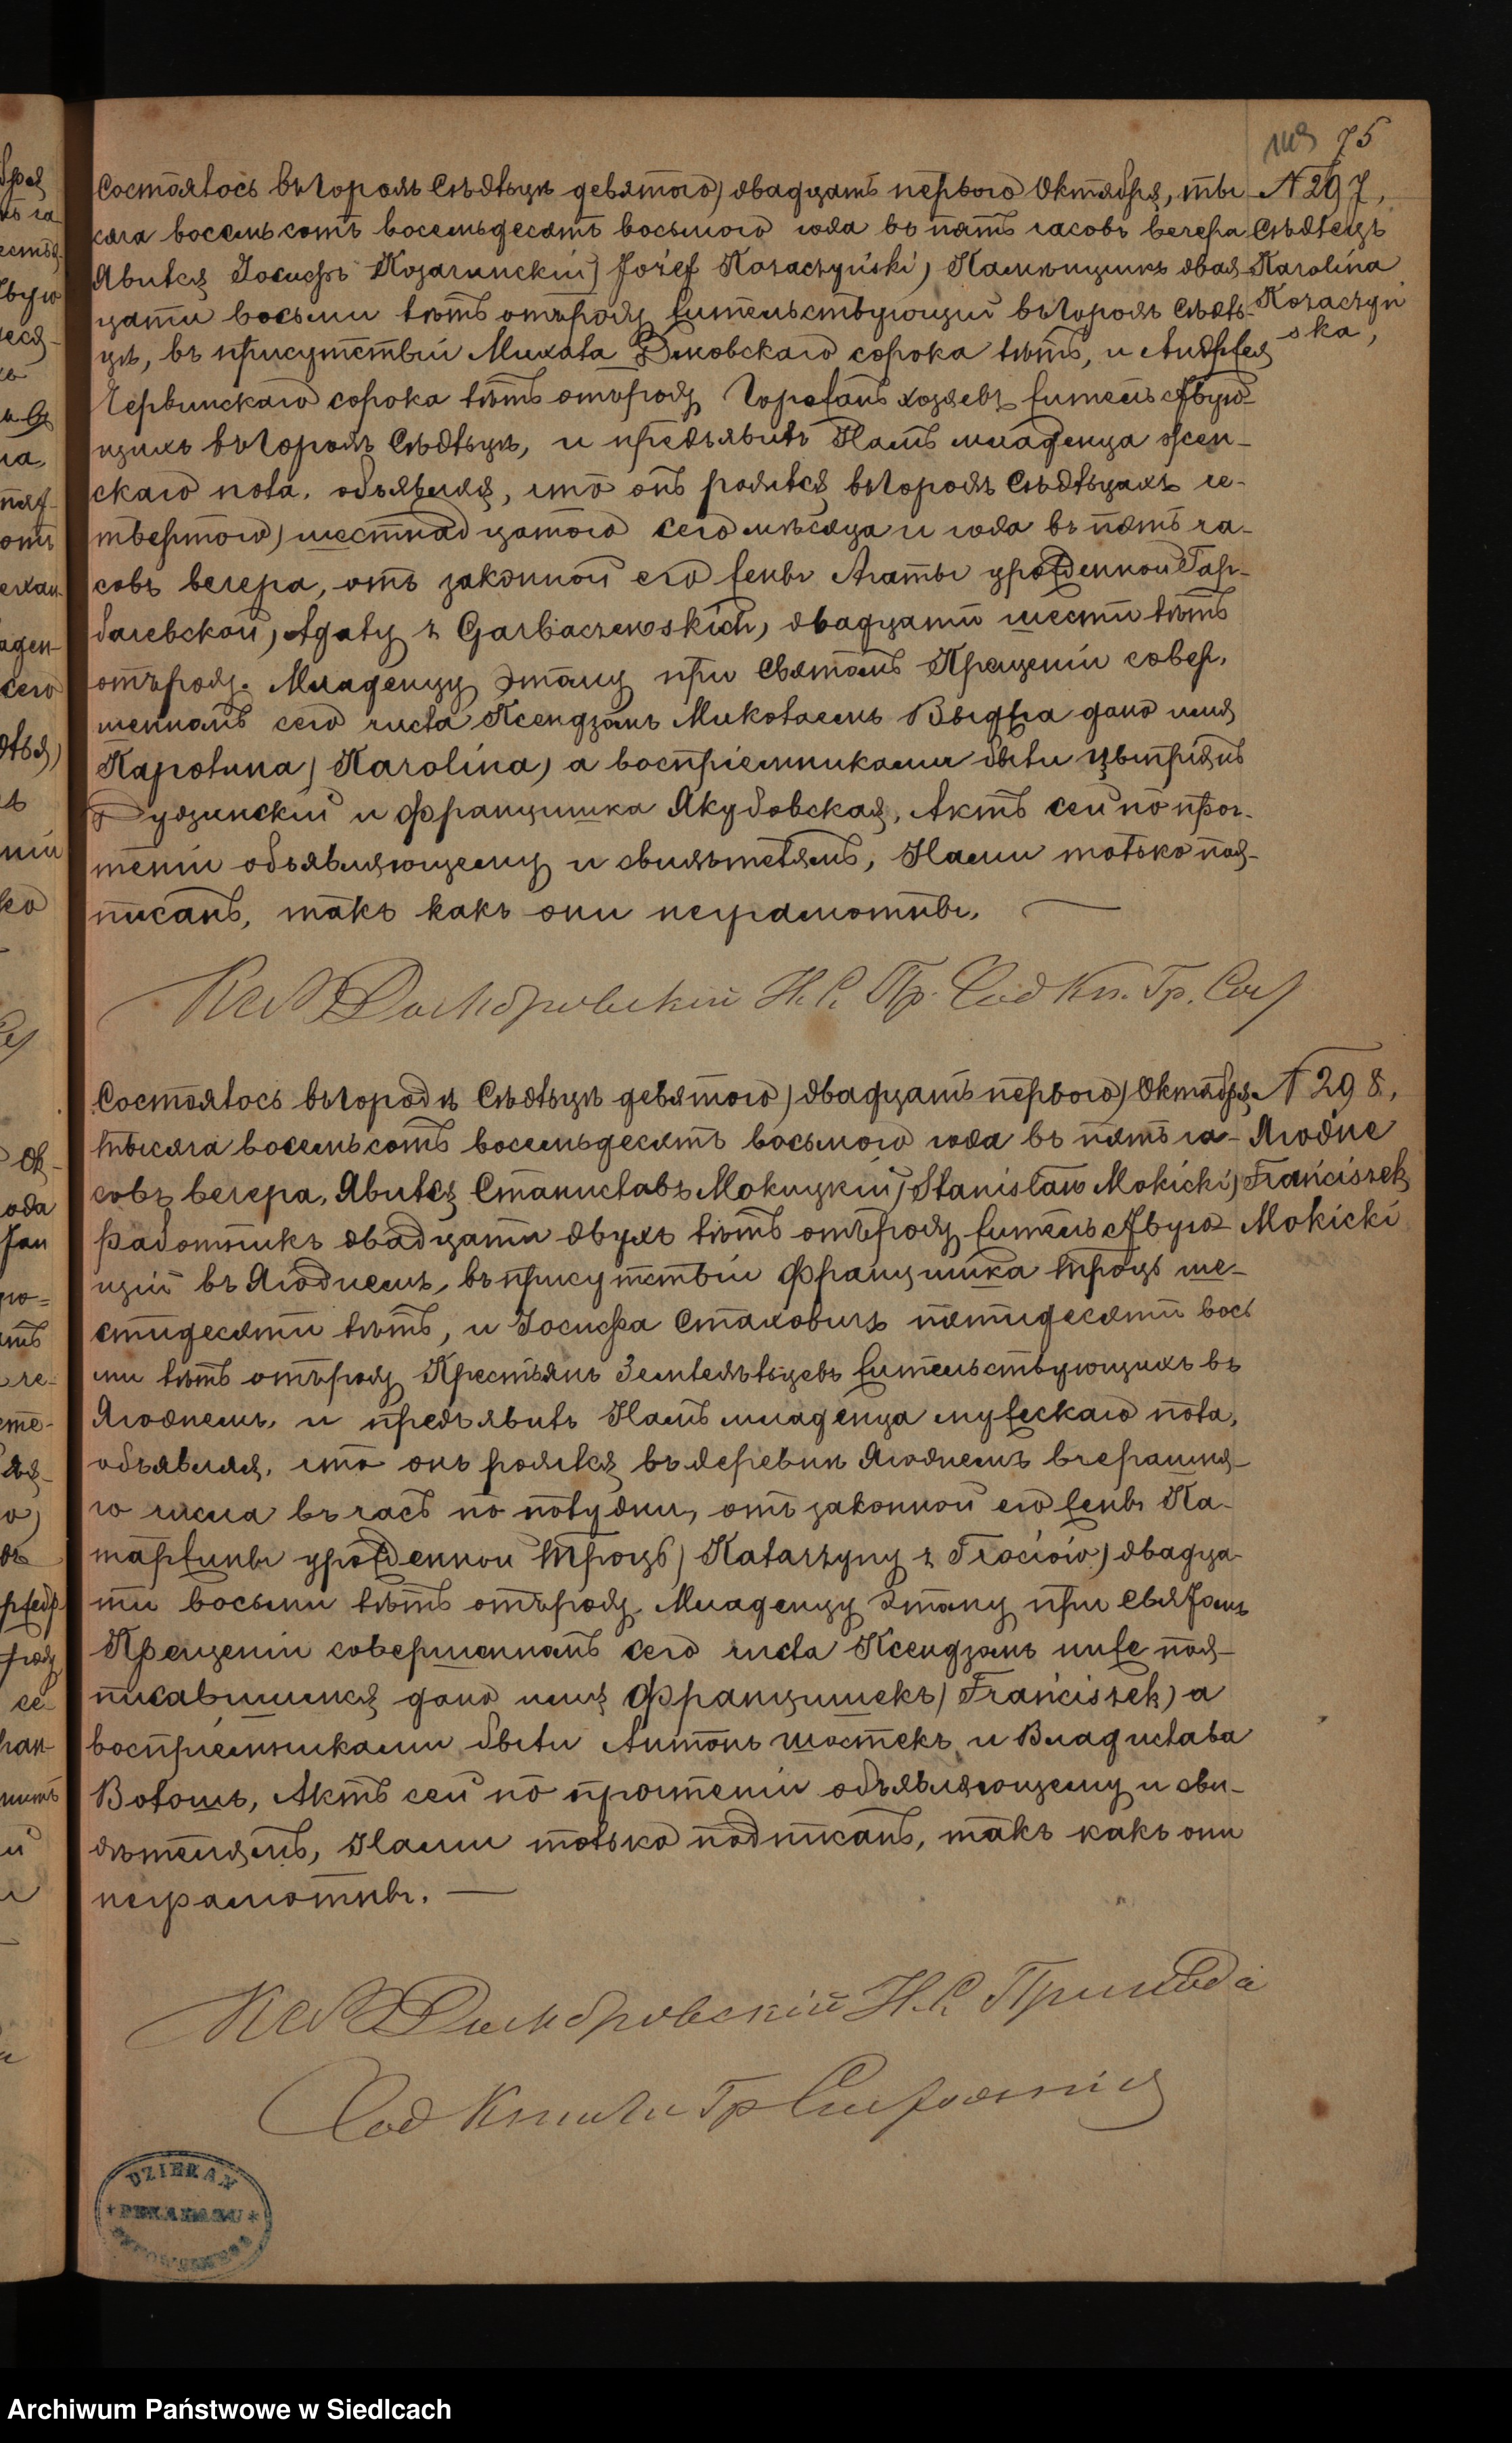 75
Состоялось въ городѣ Сѣдльцѣ девятого) двадцать первого Октября, ты-
сяча восемьсотъ восемьдесятъ восьмого года въ пять часовъ вечера
Явился Іосифъ Козачинскій) Józef Kozaczyński) Каменщикъ двад-
цати восьми лѣтъ отъ роду жительствующій въ городѣ Сѣдль-
цѣ, въ присутствіи Михала сорока лѣтъ, и Андржея
Червинскаго сорока лѣтъ отъ роду Горожанъ хозяевъ жительствую-
щихъ въ городѣ Сѣдльцѣ, и предъявилъ Намъ младенца жен-
скаго пола, объявляя, что онъ родился въ городѣ Сѣдльцахъ че-
твертого) шестнадцатого сего мѣсяца и года въ пять ча-
совъ вечера, отъ законной его жены Агаты урожденной Гар-
бачевской) Agaty z Garbaczewskich) двадцати шести лѣтъ
отъ роду. Младенцу этому при Святомъ Крещеніи совер-
шенномъ сего числа Ксендзомъ Миколаемъ дано имя
Каролина) Karolina) а воспріемниками были Цыпріянъ
и Францишка Якубовская, Актъ сей по проч-
теніи объявляющему и свидѣтелямъ, Нами только под-
писанъ, такъ какъ они неграмотны.
№ 297,
Сѣдлецъ
Karolina
Kozaczyń
ska,
Домбровскій Н. С. Пр. Сод Кн. Гр. Сос
Состоялось въ городѣ Сѣдльцѣ девятого) двадцать первого) Октября
тысяча восемьсотъ восемьдесятъ восьмого года въ пять ча-
совъ вечера, Явился Станиславъ Мокицкій) Stanisław Mokicki)
работникъ двадцати двухъ лѣтъ отъ роду жительствую-
щій въ Ягоднемъ, въ присутствіи Францишка Троць ше-
стидесяти лѣтъ, и Іосифа Стаховичъ пятидесяти вось
ми лѣтъ отъ роду Крестьянъ Земледѣльцевъ жительствующихъ въ
Ягоднемъ, и предъявилъ Намъ младенца мужескаго пола,
объявляя, что онъ родился въ деревни Ягоднемъ вчерашня-
го числа въ часъ по полудни, отъ законной его жены Ка-
таржины урожденной Троць) Katarzyny z Trociów) двадца-
ти восьми лѣтъ отъ роду. Младенцу этому при Святомъ
Крещеніи совершенномъ сего числа Ксендзомъ ниже под-
писавшимся дано имя Францишекъ) Franciszek) а
воспріемниками были Антонъ Шостекъ и Владислава
Волошъ, Актъ сей по прочтеніи объявляющему и сви-
дѣтелямъ, Нами только подписанъ, такъ какъ они
неграмотны.
№ 298,
Ягодне
Franciszek
Mokicki
Домбровскій Н. С. Прихода
Сод Книги Гр Состоянія
DZIEKAN
Archiwum Państwowe w Siedlcach